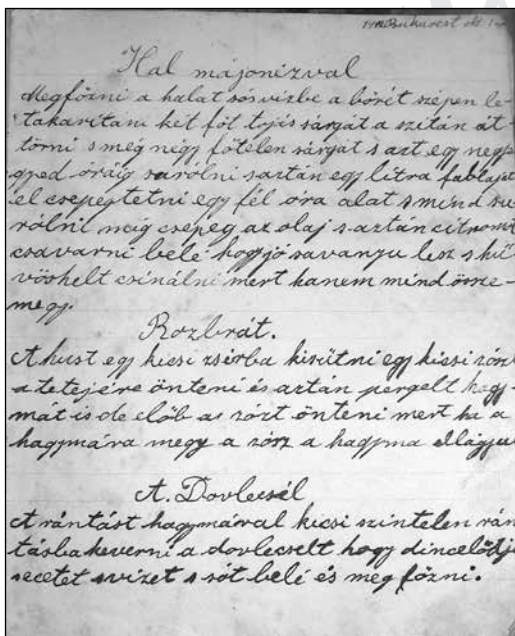 Bukarest okt. 1
Hal májonizval
Megfőzni a halat sósvízbe a bőrét szépen le-
takarítani két főt tojás sárgát a szitán át-
törni s még négy főtelen sárgát s azt egy negye
gyed óráig surólni s aztán egy litra fablajat
el csepegtetni egy fél óra alat s mind su
rólni meig csepeg az olaj s aztán citromot
csavarni belé hogy jó savanyu lesz s hü
vöshelt csinálni mert hanem mind össze-
megy.
Rozbrát.
A hust egy kicsi zsirba kisütni egy kicsi zósz
a tetejére önteni és aztán pergelt hagy
mát is de előb az zószt önteni mert ha a
hagymára megy a zósz a hagyma ellágyu
A. Dovlecsél
A rántást hagymával kicsi szintelen rán
tásba keverni a dovlecselt hogy dincelődje
ecetet s vizet s sót belé és meg főzni.